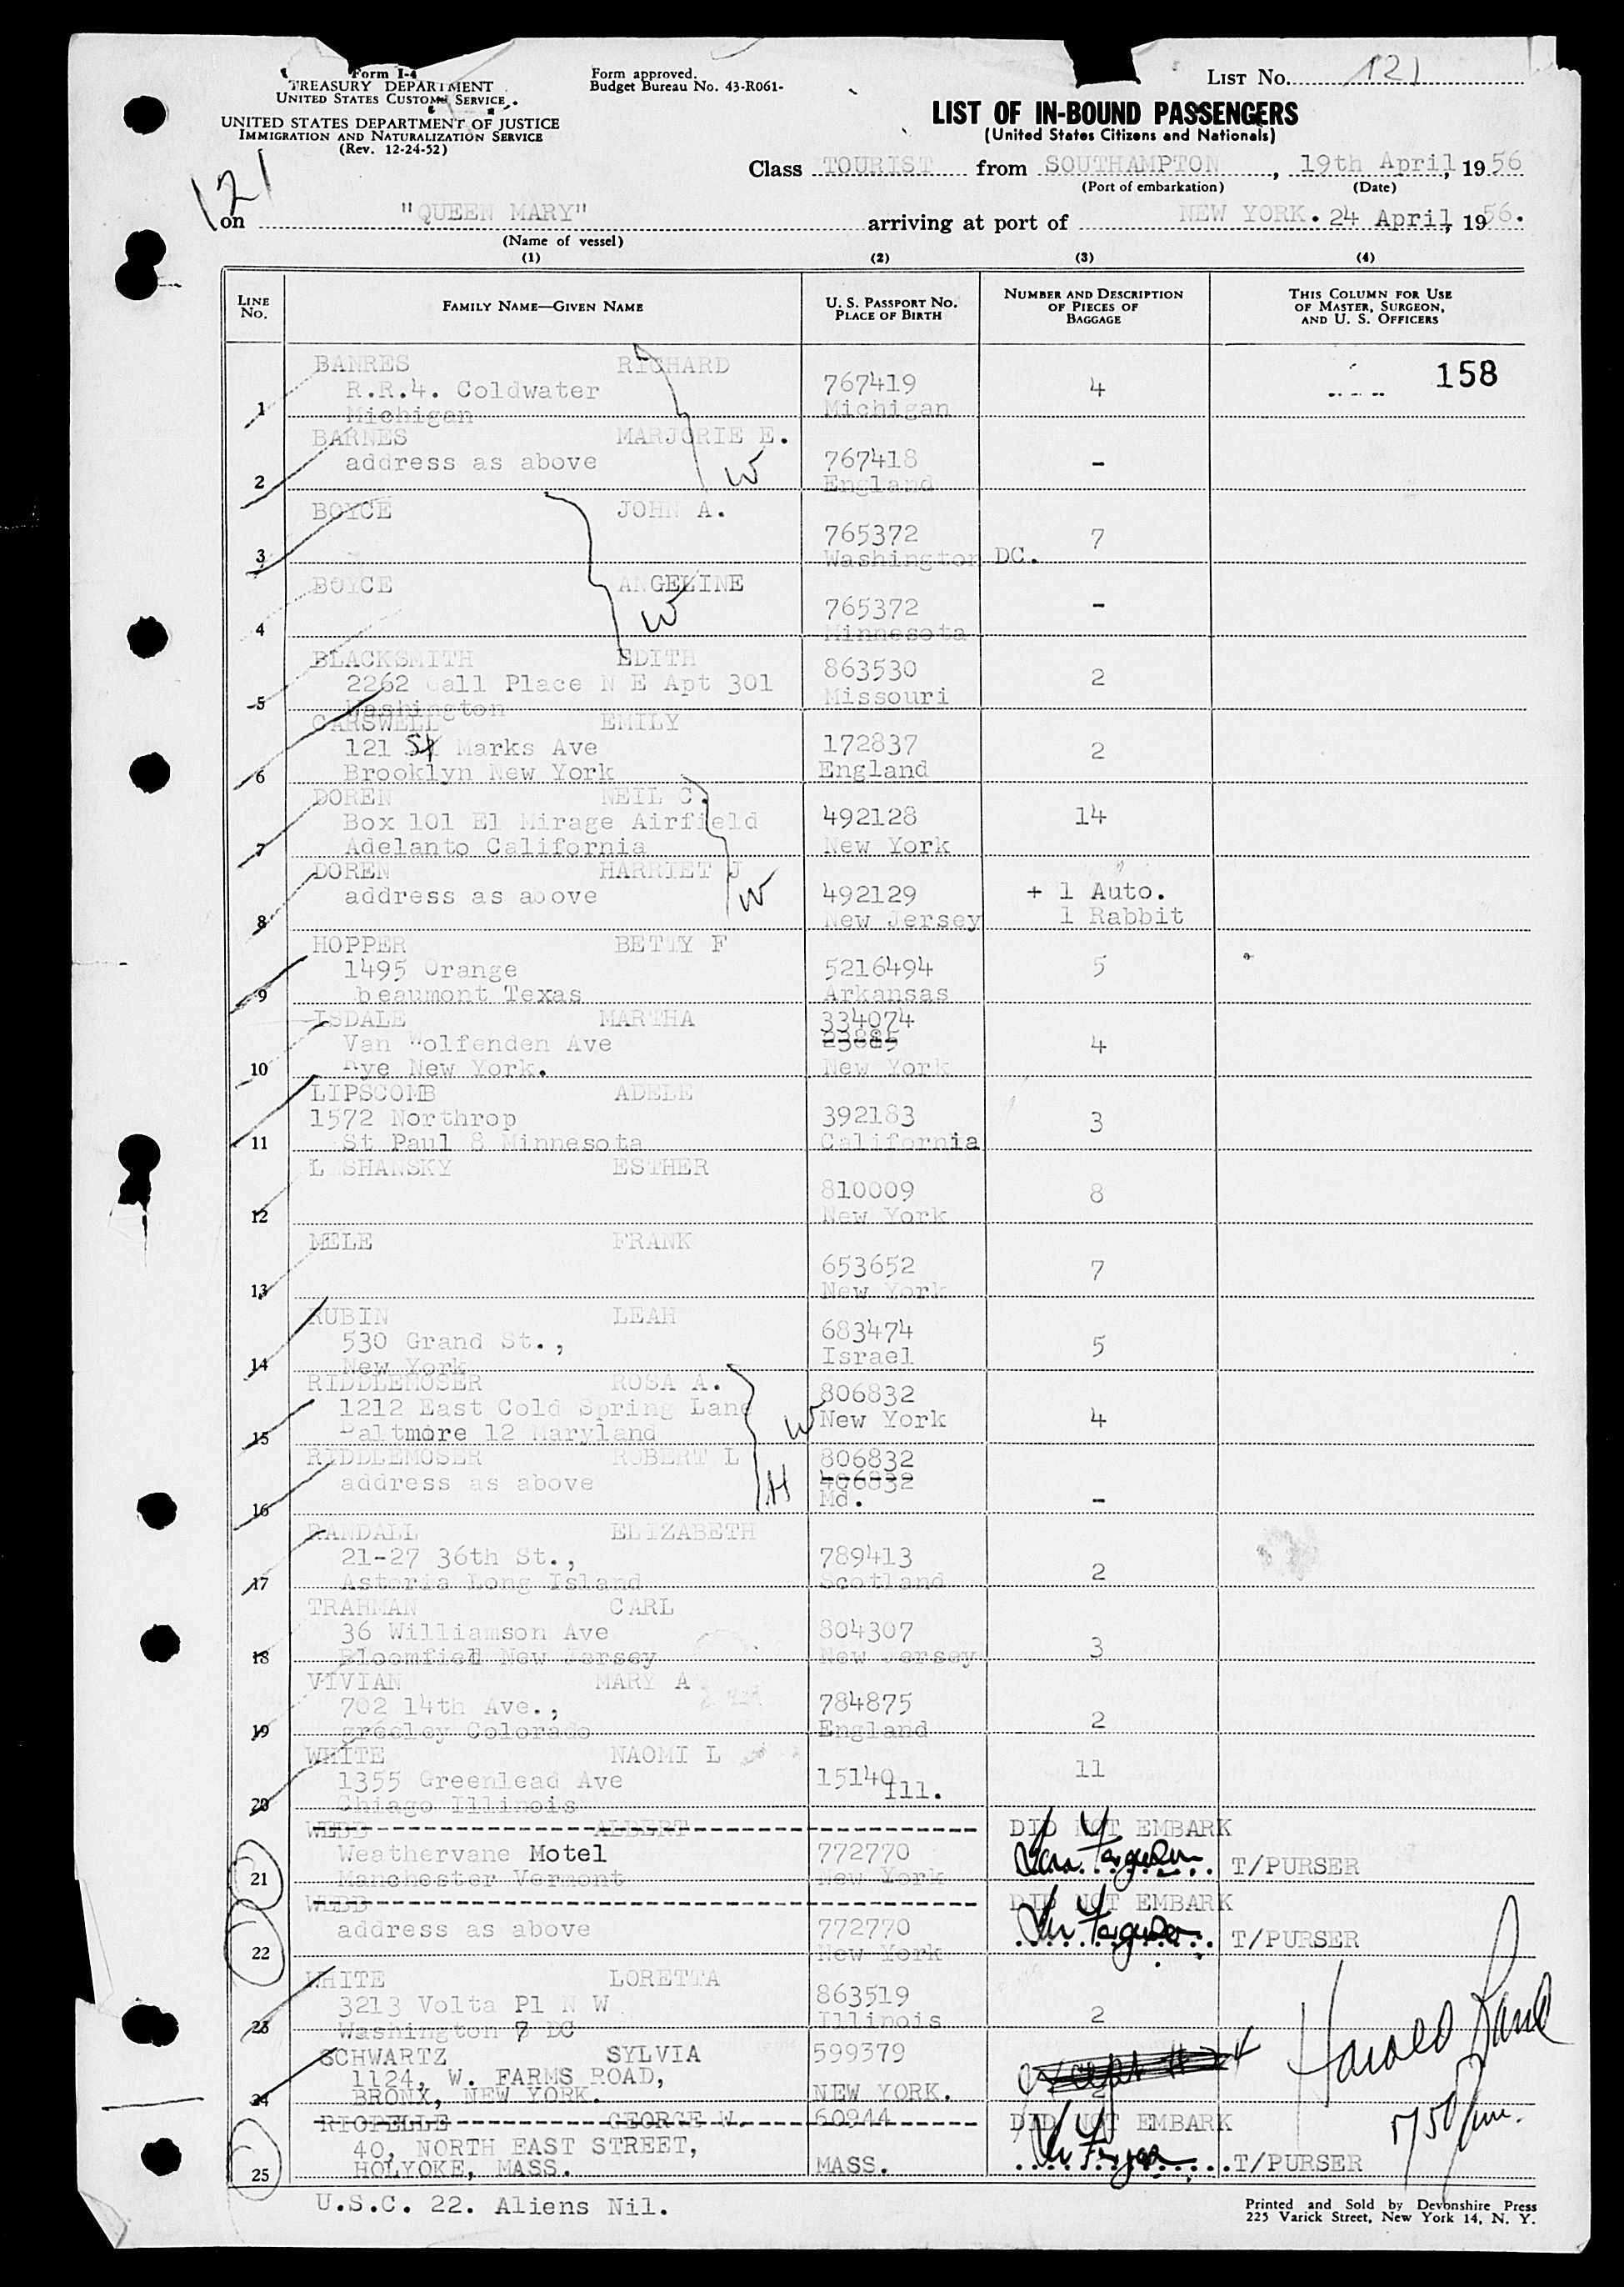 Form I-4
TREASURY DEPARTMENT
UNITED STATES CUSTOMS SERVICE
UNITED STATES DEPARTMENT OF JUSTICE
IMMIGRATION AND NATURALIZATION SERVICE
(Rev. 12-24-52)
Form approved.
Budget Bureau No. 43-R061-
LIST No. 121
LIST OF IN-BOUND PASSENGERS
(United States Citizens and Nationals)
Class TOURIST from SOUTHAMPTON, 19th April, 1956
(Port of embarkation) (Date)
121
on "QUEEN MARY" arriving at port of NEW YORK. 24 April, 1956.
(Name of vessel)
(1) (2) (3) (4)
LINE No. FAMILY NAME—GIVEN NAME U. S. PASSPORT No. PLACE OF BIRTH NUMBER AND DESCRIPTION OF PIECES OF BAGGAGE THIS COLUMN FOR USE OF MASTER, SURGEON, AND U. S. OFFICERS
158
BANRES RICHARD
R.R.4. Coldwater 767419 4
1 Michigan Michigan
BARNES MARJORIE E.
address as above 767418 -
W
2 England
BOYCE JOHN A.
765372 7
3 Washington DC.
BOYCE ANGELINE
W 765372 -
4 Minnesota
BLACKSMITH EDITH 863530
2262 Gall Place N E Apt 301 Missouri 2
5 Washington
CARSWELL EMILY
121 St Marks Ave 172837 2
6 Brooklyn New York England
DOREN NEIL C.
Box 101 El Mirage Airfield 492128 14
7 Adelanto California New York
DOREN HARRIET J
address as above W 492129 + 1 Auto.
8 New Jersey 1 Rabbit
HOPPER BETTY F
1495 Orange 5216494 5
9 beaumont Texas Arkansas
ISDALE MARTHA 334074
Van Wolfenden Ave 23885 4
10 Rye New York. New York
LIPSCOMB ADELE
1572 Northrop 392183 3
11 St Paul 8 Minnesota California
L SHANSKY ESTHER
810009 8
12 New York
MELE FRANK
653652 7
13 New York
RUBIN LEAH
530 Grand St., 683474 5
14 New York Israel
RIDDLEMOSER ROSA A. 806832
1212 East Cold Spring Lane W New York 4
15 Baltmore 12 Maryland
RIDDLEMOSER ROBERT L 806832
address as above H 406832
16 Md. -
RANDALL ELIZABETH
21-27 36th St., 789413 2
17 Astoria Long Island Scotland
TRAHMAN CARL
36 Williamson Ave 804307 3
18 Bloomfield New Jersey New Jersey
VIVIAN MARY A
702 14th Ave., 784875 2
19 greeley Colorado England
WHITE NAOMI L
1355 Greenlead Ave 15140 11
20 Chiago Illinois Ill.
WEBB ALBERT DID NOT EMBARK
Weathervane Motel 772770 T/PURSER
21 Manchester Vermont New York
WEBB DID NOT EMBARK
address as above 772770 T/PURSER
22 New York
WHITE LORETTA
3213 Volta Pl N W 863519 2
23 Washington 7 DC Illinois
SCHWARTZ SYLVIA 599379
1124, W. FARMS ROAD,
24 BRONX, NEW YORK. NEW YORK. 2
RIOPELLE GEORGE W. 60944 DID NOT EMBARK
40, NORTH EAST STREET,
25 HOLYOKE, MASS. MASS. T/PURSER
U.S.C. 22. Aliens Nil.
Printed and Sold by Devonshire Press
225 Varick Street, New York 14, N. Y.